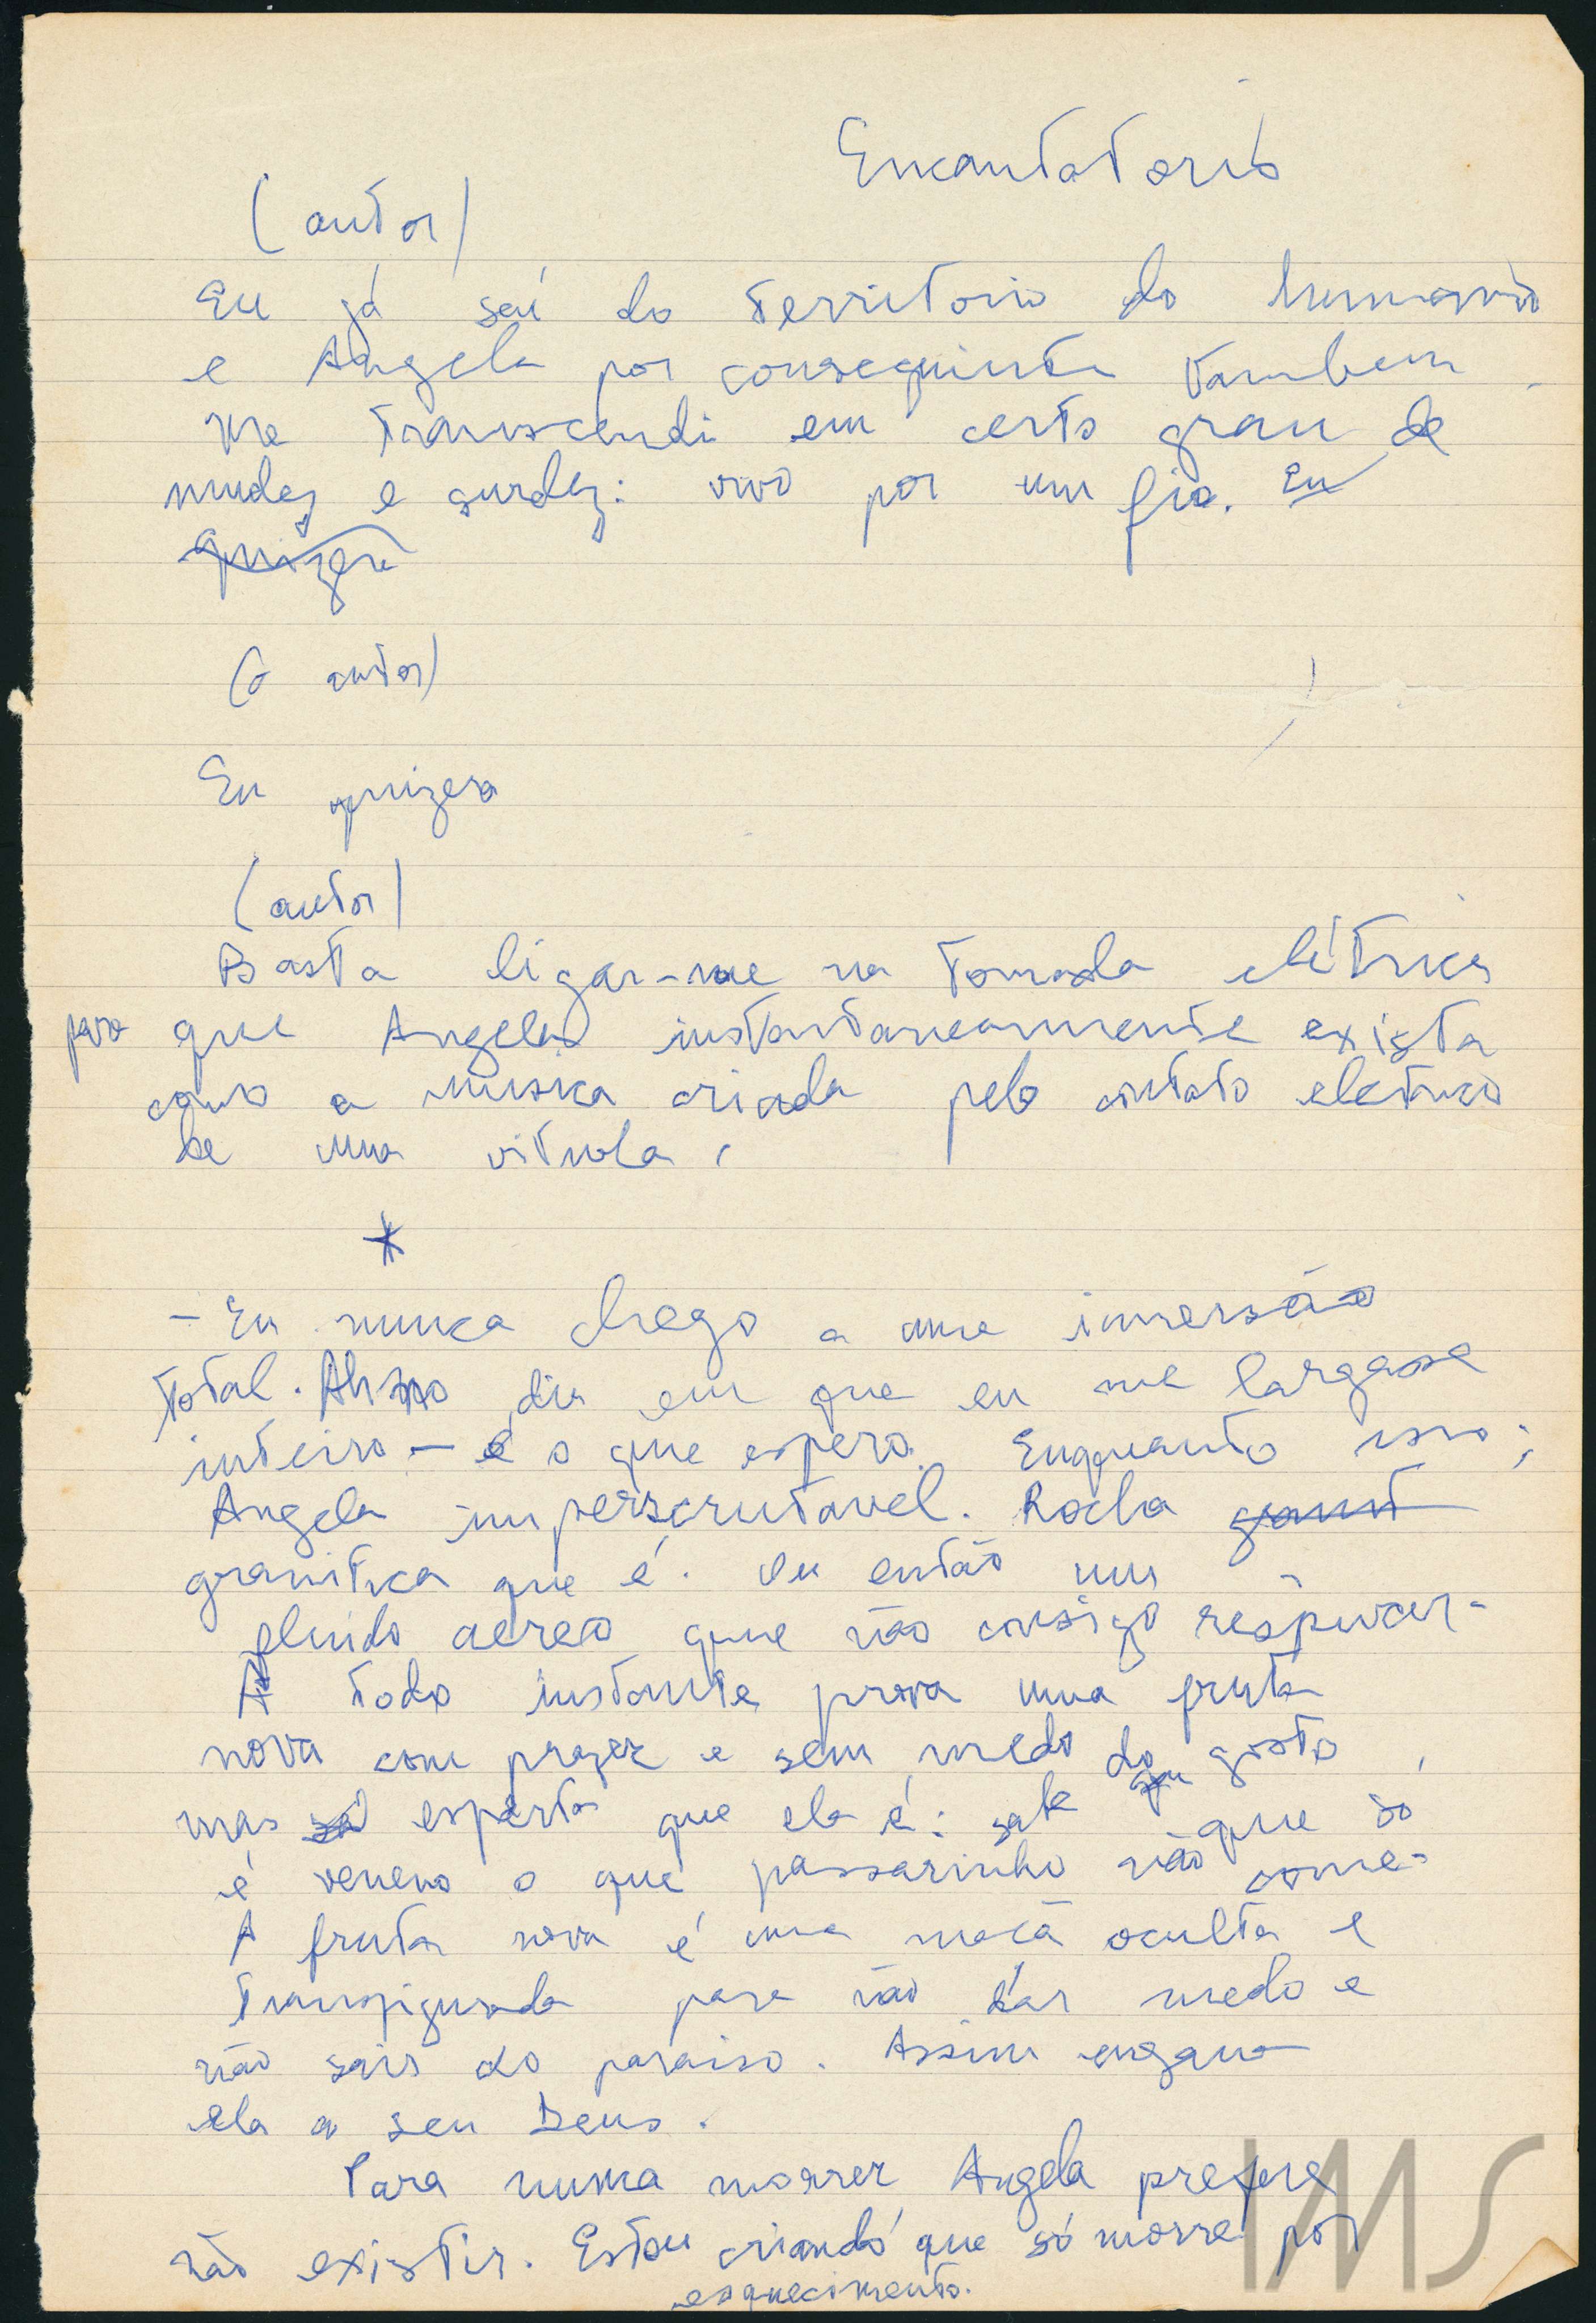 Encantatorio
(autor)
Eu já saí do territorio do humano
e Angela por conseguinte tambem.
Me transcendi em certo grau de
mudez e surdez: vivo por um fio. Eu
quizera
(o autor)
Eu quizera
(autor)
Basta ligar-me na tomada elétrica
para que Angela instantaneamente exista
como a musica criada pelo contato eletrico
de uma vitrola.
*
- Eu nunca chego a uma imersão
total. Ah no dia em que eu me largasse
inteiro — é o que espero. Enquanto isso:
Angela imperscrutavel. Rocha granit
granitica que é. Ou então um
fluido aereo que não consigo respirar.
A todo instante prova uma fruta
nova com prazer e sem medo do gosto,
mas esperta que ela é: sabe que que só
é veneno o que passarinho não come.
A fruta nova é uma maçã oculta e
transfigurada para não dar medo e
não sair do paraiso. Assim engana
ela a seu Deus.
Para nunca morrer Angela prefere
não existir. Estou criando que só morre por
esquecimento.
IMS